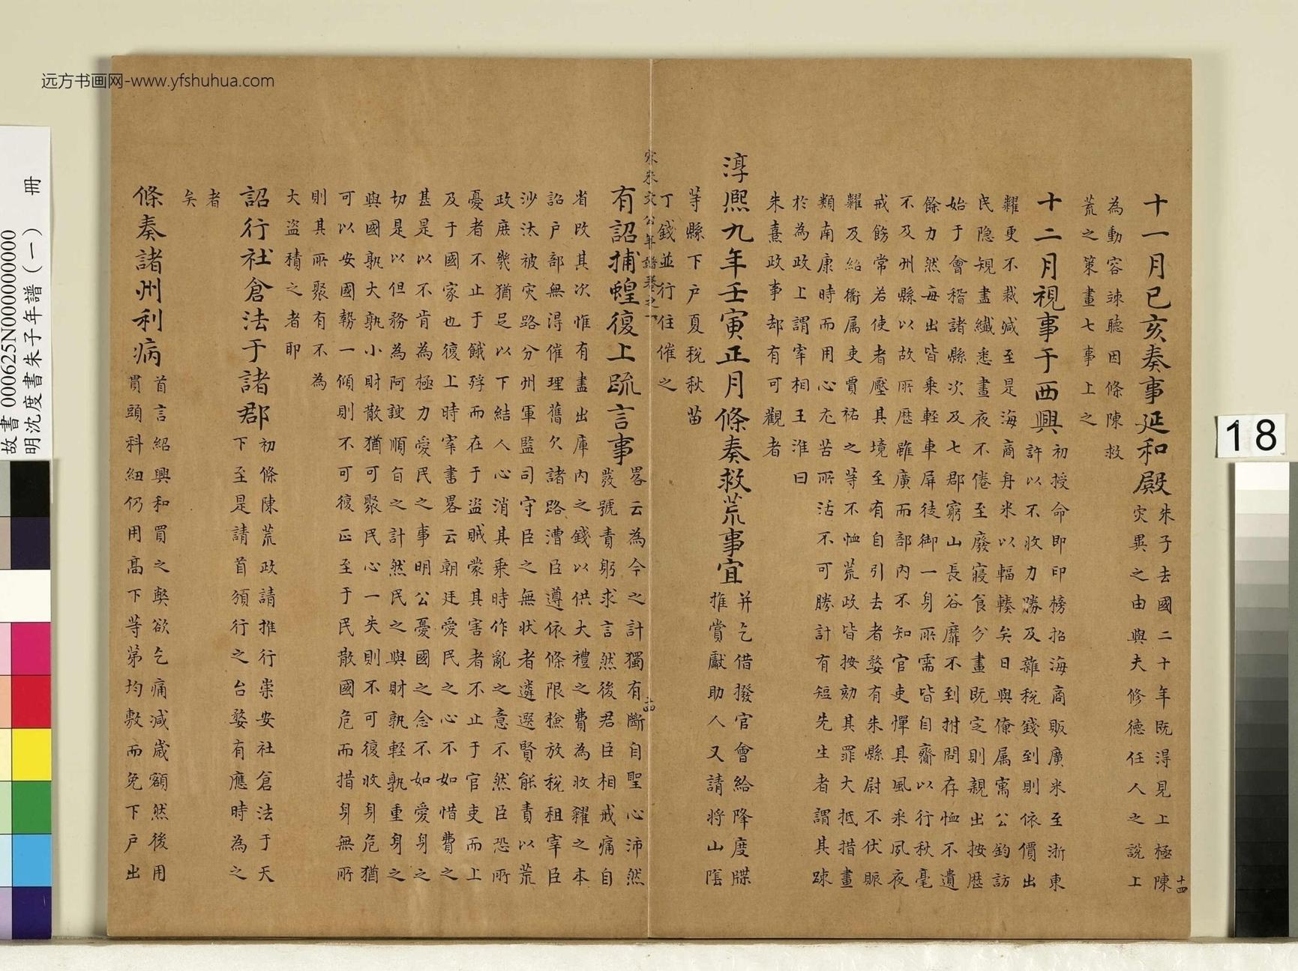 十一月己亥奏事延和殿朱子去國二十年既得見上極陳
災異之由與夫修德任人之說上
為動容竦聽因條陳救
荒之策畫七事上之
十二月視事于西興初授命即印榜招海商販廣米至浙東
許以不收力勝及雜稅錢到則依價出
糶更不裁減至是海商舟米以輻輳矣日與僚属寓公鈞訪
民隐規畫纖悉晝夜不倦至廢寢食分畫既定則親出按歷
始于會稽諸縣次及七郡窮山長谷靡不到拊問存恤不遺
餘力然每出皆乘輕車屏徒御一身所需皆自齎以行秋毫
不及州縣以故所歷雖廣而部內不知官吏憚其風采夙夜
戒飭常若使者壓其境至有自引去者婺有朱縣尉不伏賑
糶及紿衢属吏賈祐之等不恤荒政皆按劾其罪大抵措畫
類南康時而用心尤苦所活不可勝計有短先生者謂其踈
於為政上謂宰相王淮曰
朱熹政事却有可觀者
淳熙九年壬寅正月條奏救荒事宜并乞借撥官會給降度牒
推賞獻助人又請將山陰
等縣下户夏税秋苗
丁錢並行住催之
宋朱文公年譜卷之一
十四
有詔捕蝗復上疏言事畧云為今之計獨有斷自聖心沛然
發號責躬求言然後君臣相戒痛自
省改其次惟有盡出庫內之錢以供大禮之費為收糴之本
詔户部無得催理舊欠諸路漕臣遵依條限檢放稅租宰臣
沙汰被災路分州軍監司守臣之無狀者遴選賢能責以荒
政庶幾猶足以下結人心消其乘時作亂之意不然臣恐所
憂者不止于餓殍而在于盜賊蒙其害者不止于官吏而上
及于國家也復上時宰書畧云朝廷愛民之心不如惜費之
甚是以不肯為極力愛民之事明公憂國之念不如愛身之
切是以但務為阿諛順旨之計然民之與財孰輕孰重身之
與國孰大孰小財散猶可聚民心一失則不可復收身危猶
可以安國勢一傾則不可復正至于民散國危而措身無所
則其所聚有不為
大盜積之者耶
詔行社倉法于諸郡初條陳荒政請推行崇安社倉法于天
下至是請首頒行之台婺有應時為之
者
矣
條奏諸州利病首言紹興和買之弊欲乞痛減歲額然後用
貫頭科紐仍用高下等第均敷而免下户出
十四
远方书画网-www.yfshuhua.com
故書 000625N000000000 冊
明沈度書朱子年譜(一)
18